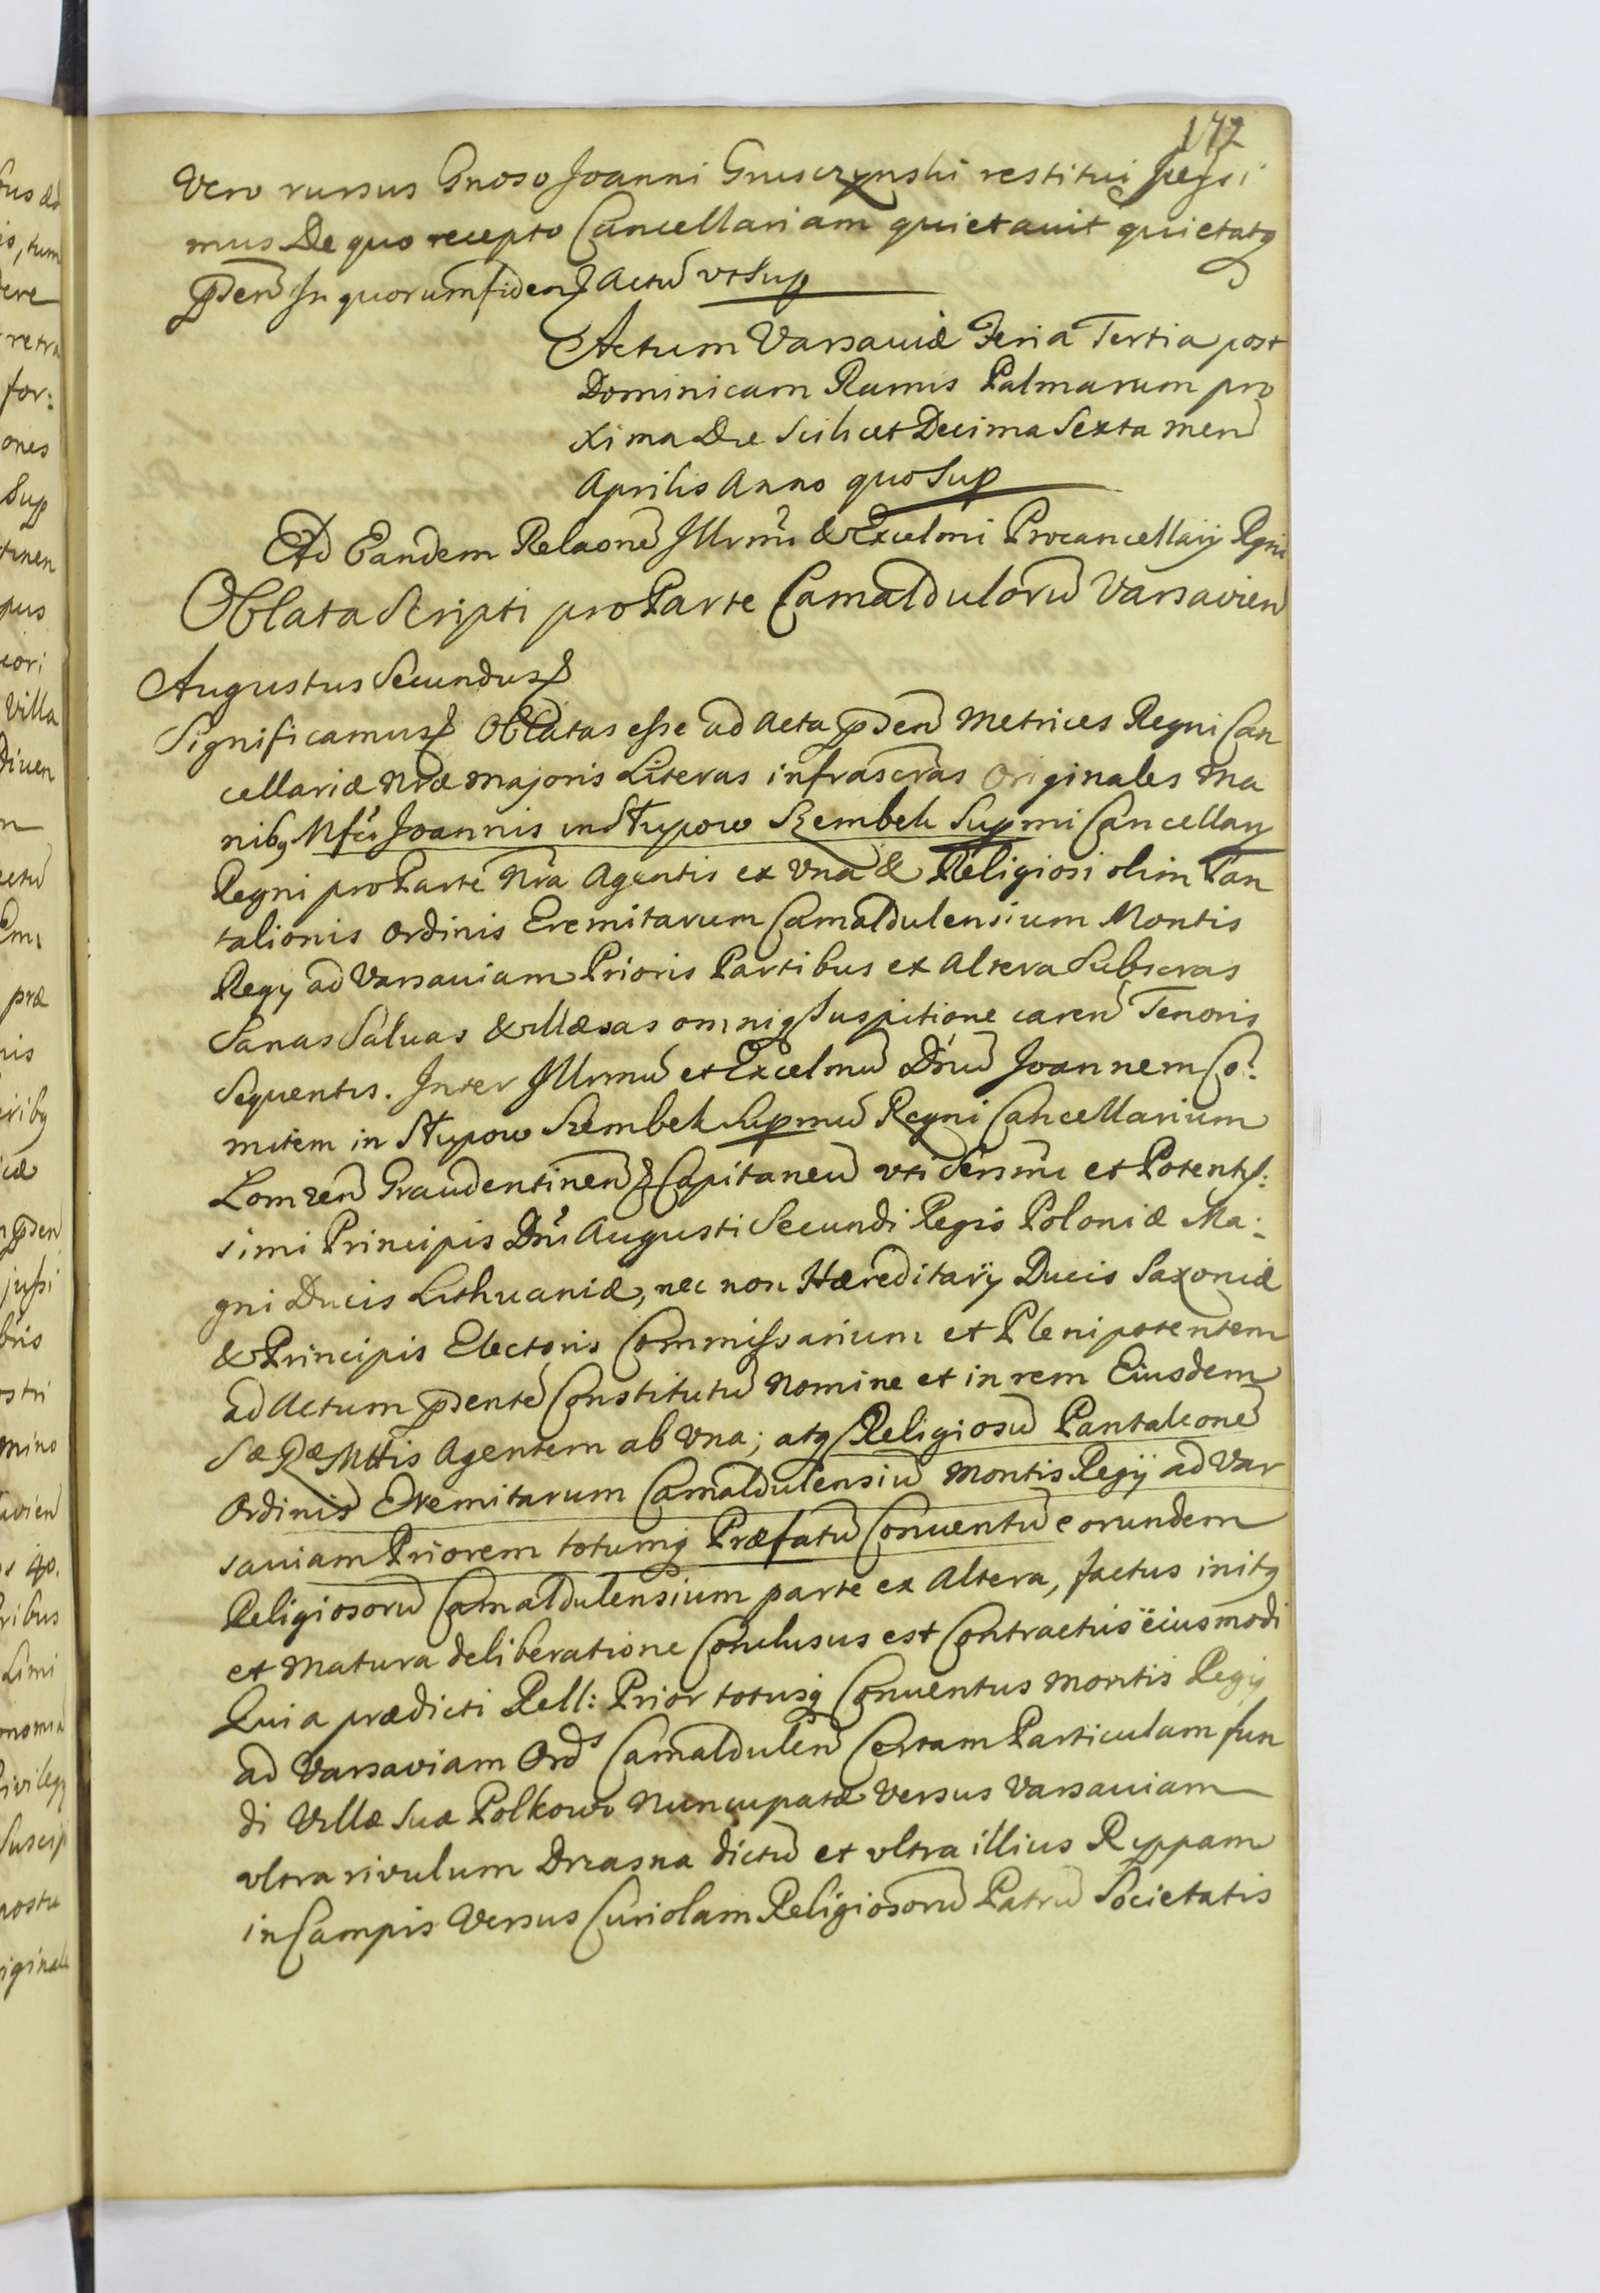 172
Vero rursus Gnoso Joanni Grusczynski restitui permsi
mus De quo recepto Cancellariam quietavit quietatq
pnden In quorum fidem Actu vt Sup
Actum Varsaviæ Feria Tertia post
Dominicam Ramis Palmarum pro
xima Die Scilicet Decima Sexta men
Aprilis Anno quo Sup
Ad Eandem Relaone Illrmi & Excelmi Procancellarij Rgni
Oblata Scripti pro Parte Camalduloru Varsavien
Augustus Secundus
Significamus Oblatas esse ad Acta pnden Metrices Regni Can
cellariæ Nræ Majoris Literas infrascras Originales Ma
nibq Mfci Joannis in Słupow Szembek Supmi Cancellarij
Regni pro Parte Nra Agentis ex Vna & Religiosi olim Pan
talionis Ordinis Eremitarum Camaldulensium Montis
Regij ad Varsaviam Prioris Partibus ex Altera Subscras
Sanas Salvas & Illæsas omniq Suspitione caren Tenoris
Sequentis. Inter Illrmu et Excelmu Dnu Joannem Co:
mitem in Słupow Szembek Supmu Regni Cancellarium
Lomzen Graudentinen Capitaneu vti Sersmi et Potentis:
simi Principis Dni Augusti Secundi Regis Poloniæ Ma:
gni Ducis Lithuaniæ, nec non Hæreditarij Ducis Saxoniæ
& Principis Electoris Commissarium et Plenipotentem
ad Actum pndente Constitutu Nomine et in rem Eiusdem
Sæ Ræ Mttis Agentem ab Vna; atq Religiosu Pantaleone
Ordinis Eremitarum Camaldulensiu Montis Regij ad Var
saviam Priorem totumq Præfatu Conventu eorundem
Religiosoru Camaldulensium parte ex Altera, factus initq
et Matura deliberatione Conclusus est Contractus eiusmodi
Quia prædicti Rell: Prior totusq Conventus Montis Regij
ad Varsaviam Ords Camaldulen Certam Particulam fun
di Villæ Suæ Polkowo Nuncupatæ versus Varsaviam
vltra rivulum Drzasna dictu et vltra illius Ryppam
in Campis Versus Curiolam Religiosoru Patru Societatis